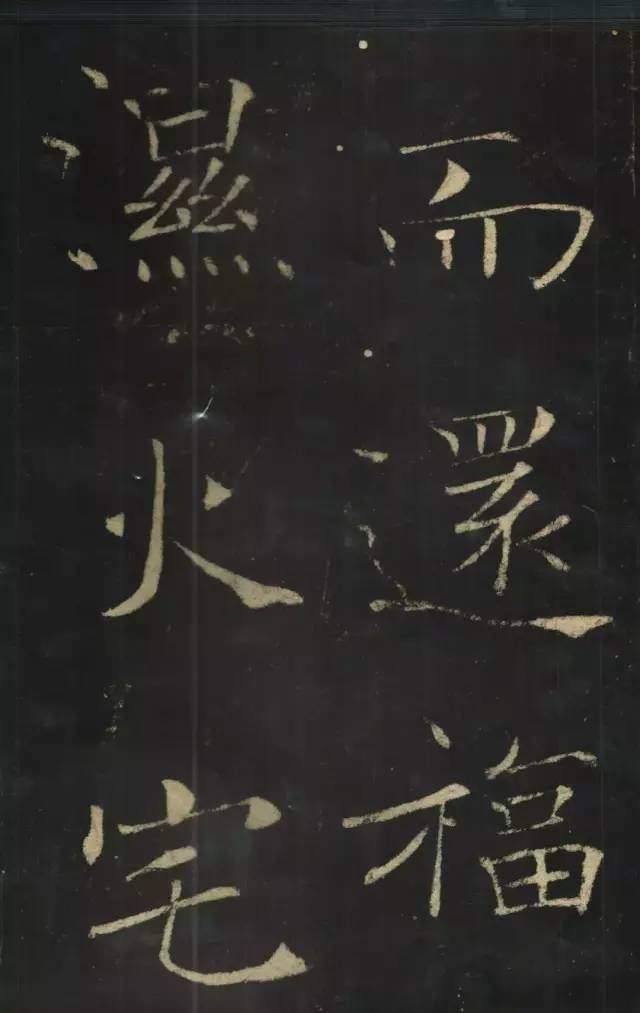 而還福
濕火宅